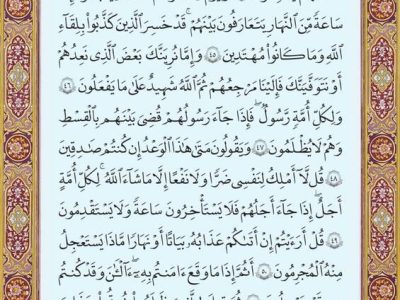 سَاعَةً مِّنَ ٱلنَّهَارِ يَتَعَارَفُونَ بَيْنَهُمْ ۚ قَدْ خَسِرَ ٱلَّذِينَ كَذَّبُوا۟ بِلِقَآءِ
ٱللَّهِ وَمَا كَانُوا۟ مُهْتَدِينَ ٤٥ وَإِمَّا نُرِيَنَّكَ بَعْضَ ٱلَّذِى نَعِدُهُمْ
أَوْ نَتَوَفَّيَنَّكَ فَإِلَيْنَا مَرْجِعُهُمْ ثُمَّ ٱللَّهُ شَهِيدٌ عَلَىٰ مَا يَفْعَلُونَ ٤٦
وَلِكُلِّ أُمَّةٍ رَّسُولٌ ۖ فَإِذَا جَآءَ رَسُولُهُمْ قُضِىَ بَيْنَهُم بِٱلْقِسْطِ
وَهُمْ لَا يُظْلَمُونَ ٤٧ وَيَقُولُونَ مَتَىٰ هَٰذَا ٱلْوَعْدُ إِن كُنتُمْ صَٰدِقِينَ
٤٨ قُل لَّآ أَمْلِكُ لِنَفْسِى ضَرًّا وَلَا نَفْعًا إِلَّا مَا شَآءَ ٱللَّهُ ۗ لِكُلِّ أُمَّةٍ
أَجَلٌ ۚ إِذَا جَآءَ أَجَلُهُمْ فَلَا يَسْتَـْٔخِرُونَ سَاعَةً وَلَا يَسْتَقْدِمُونَ
٤٩ قُلْ أَرَءَيْتُمْ إِنْ أَتَىٰكُمْ عَذَابُهُۥ بَيَٰتًا أَوْ نَهَارًا مَّاذَا يَسْتَعْجِلُ
مِنْهُ ٱلْمُجْرِمُونَ ٥٠ أَثُمَّ إِذَا مَا وَقَعَ ءَامَنتُم بِهِۦٓ ۚ ءَآلْـَٰٔنَ وَقَدْ كُنتُم